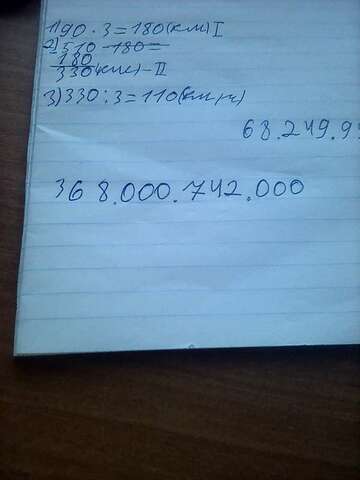 1) 90 · 3 = 180 (км) I
2) 510 - 180 =
180
330 (км) - II
3) 330 : 3 = 110 (км/ч)
68.249.9
368.000.742.000